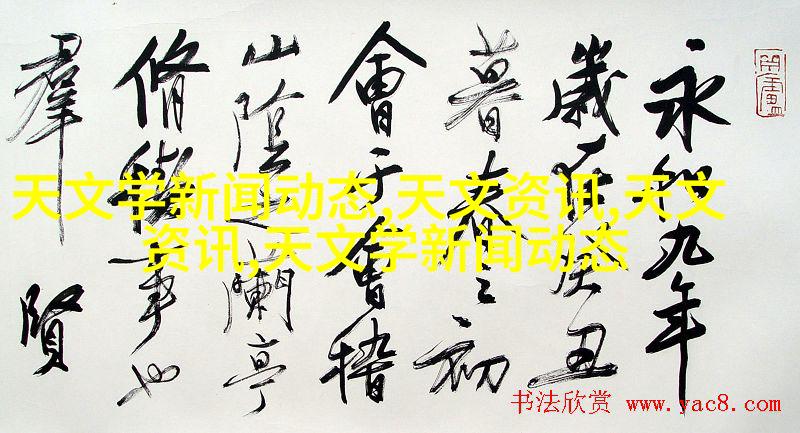 永和九年
歲在癸丑
暮春之初
會于會稽
山陰之蘭亭
脩禊事也
羣賢
天文学新闻动态,天文资讯,天文
资讯,天文学新闻动态
书法欣赏 www.yac8.com